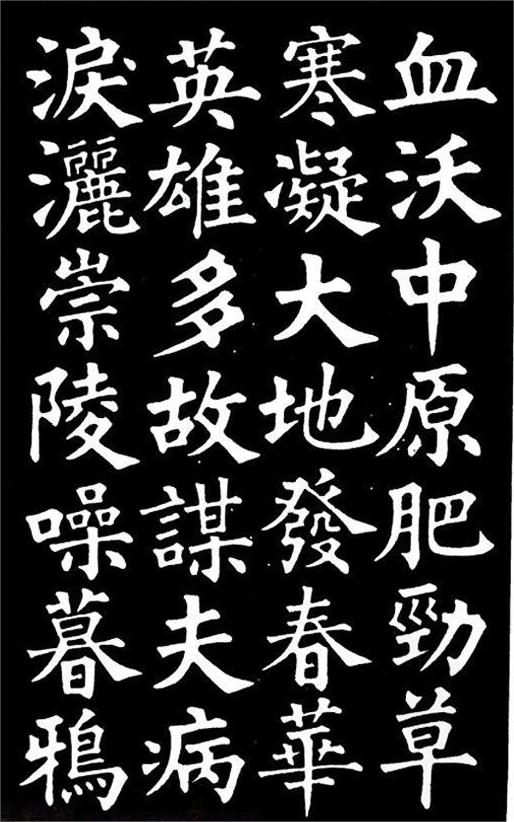 血沃中原肥勁草
寒凝大地發春華
英雄多故謀夫病
淚灑崇陵噪暮鴉